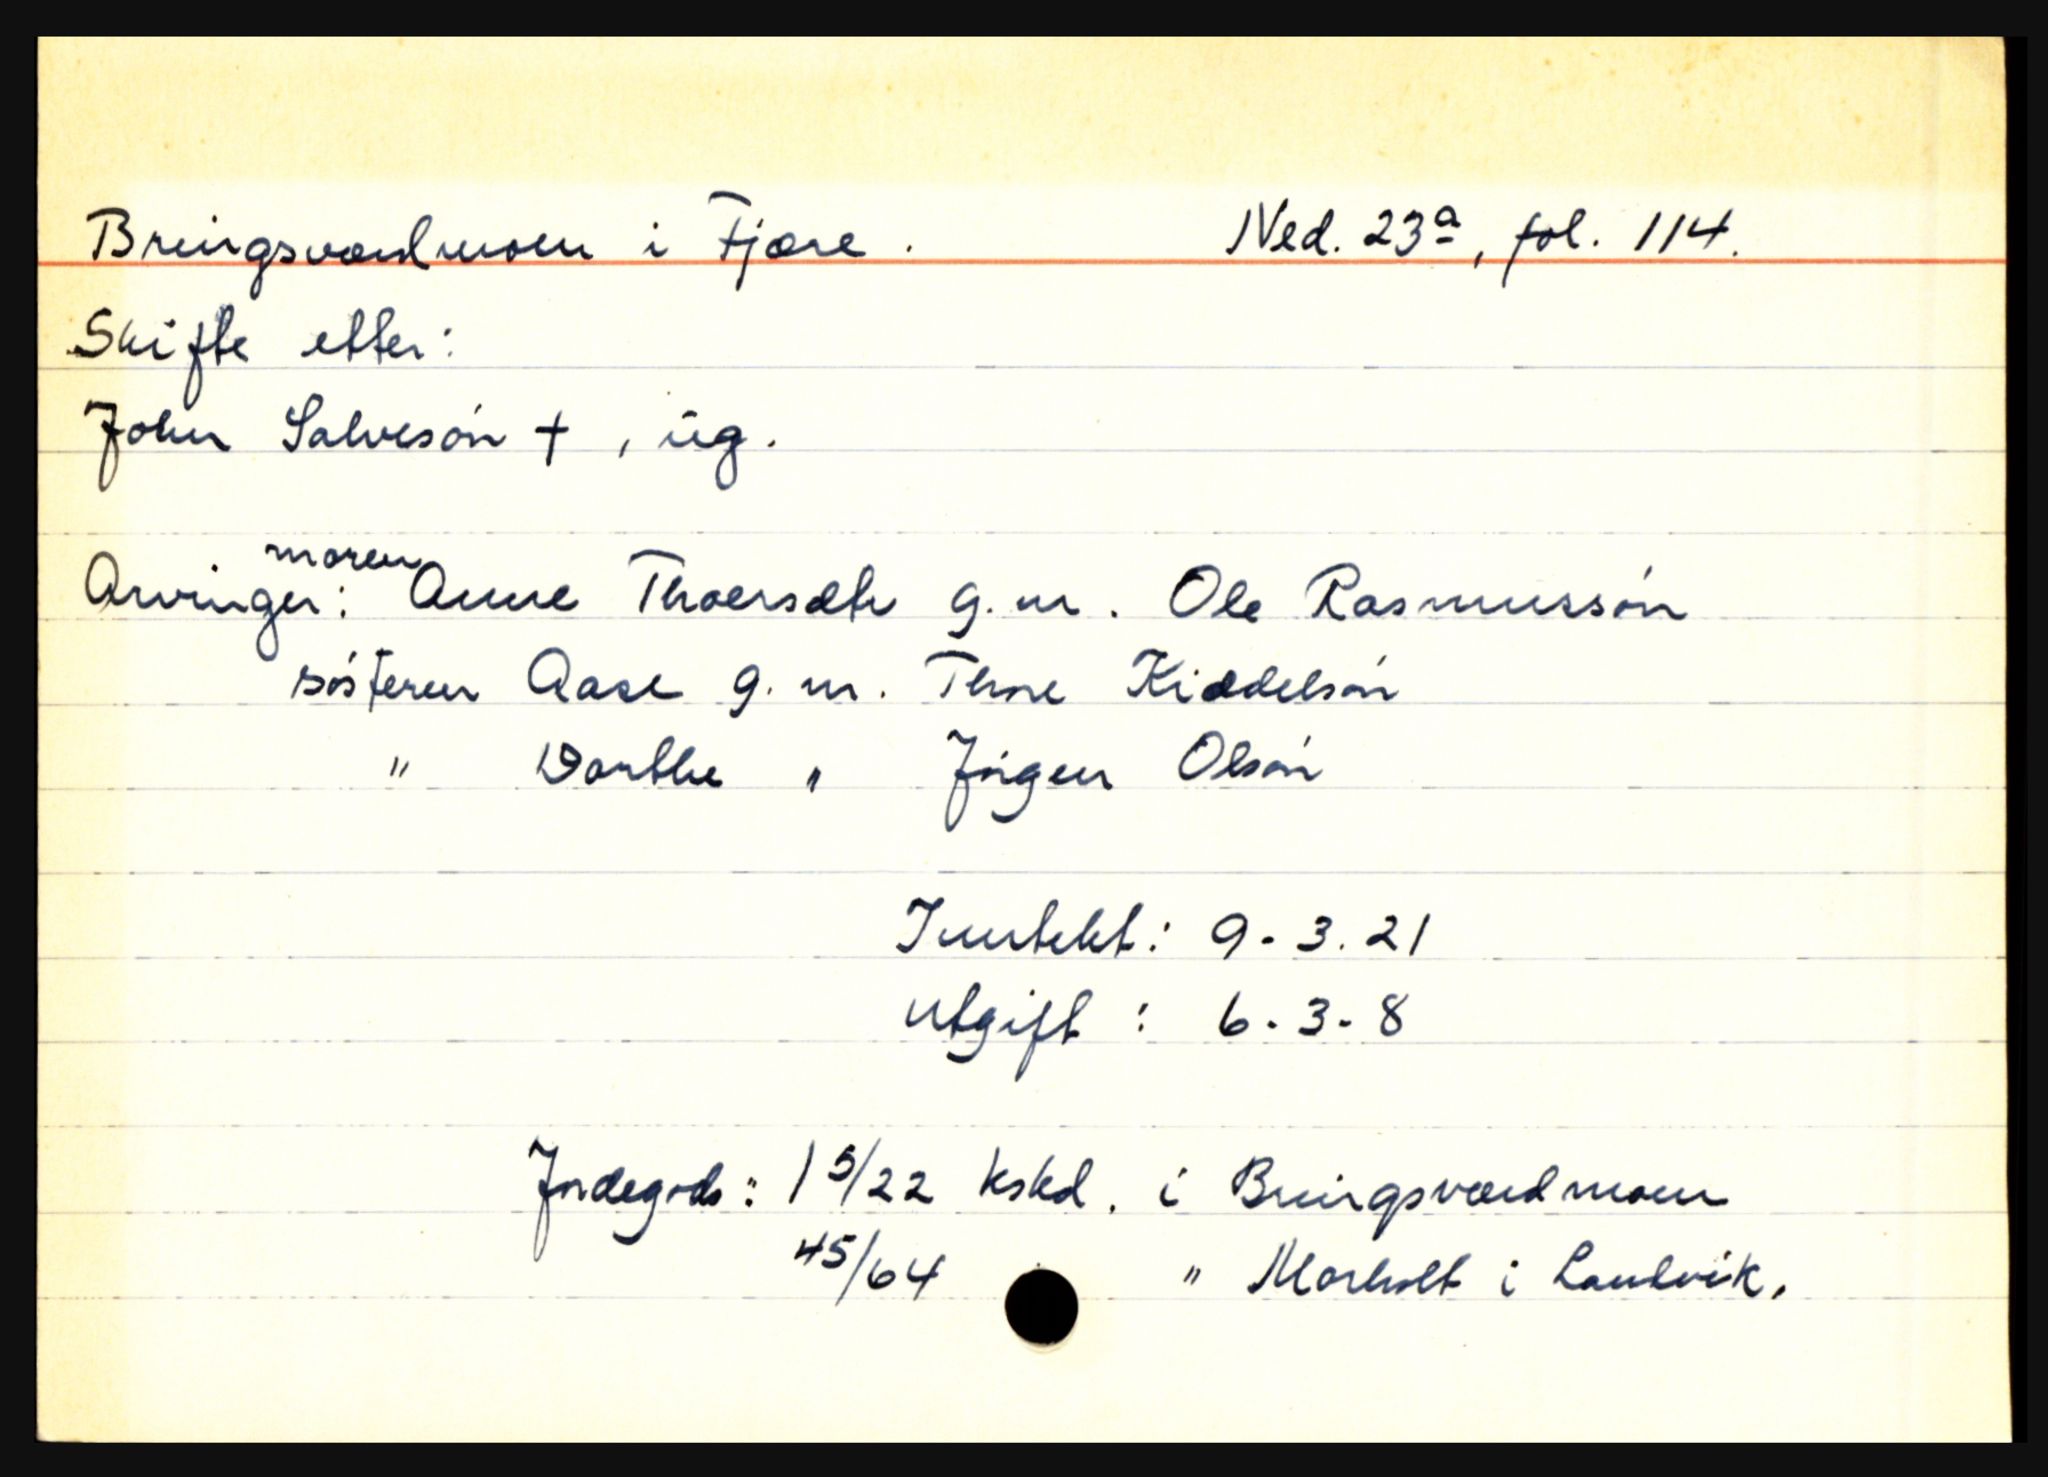 Bringsværdmoen i Fjære. Ned. 23a, fol. 114.
Skifte etter:
John Salvesøn +, ug.
moren
Arvinger: Anne Thoersdtr g.m. Ole Rasmussøn
søsteren Aase g.m. Thore Kiddelsøn
" Dorthe " Jørgen Olsøn
Inntekt: 9-3.21
Utgift: 6-3-8
Jordegods: 1 5/22 kskd. i Bringsværdmoen
45/64 " Morholt i Landvik.